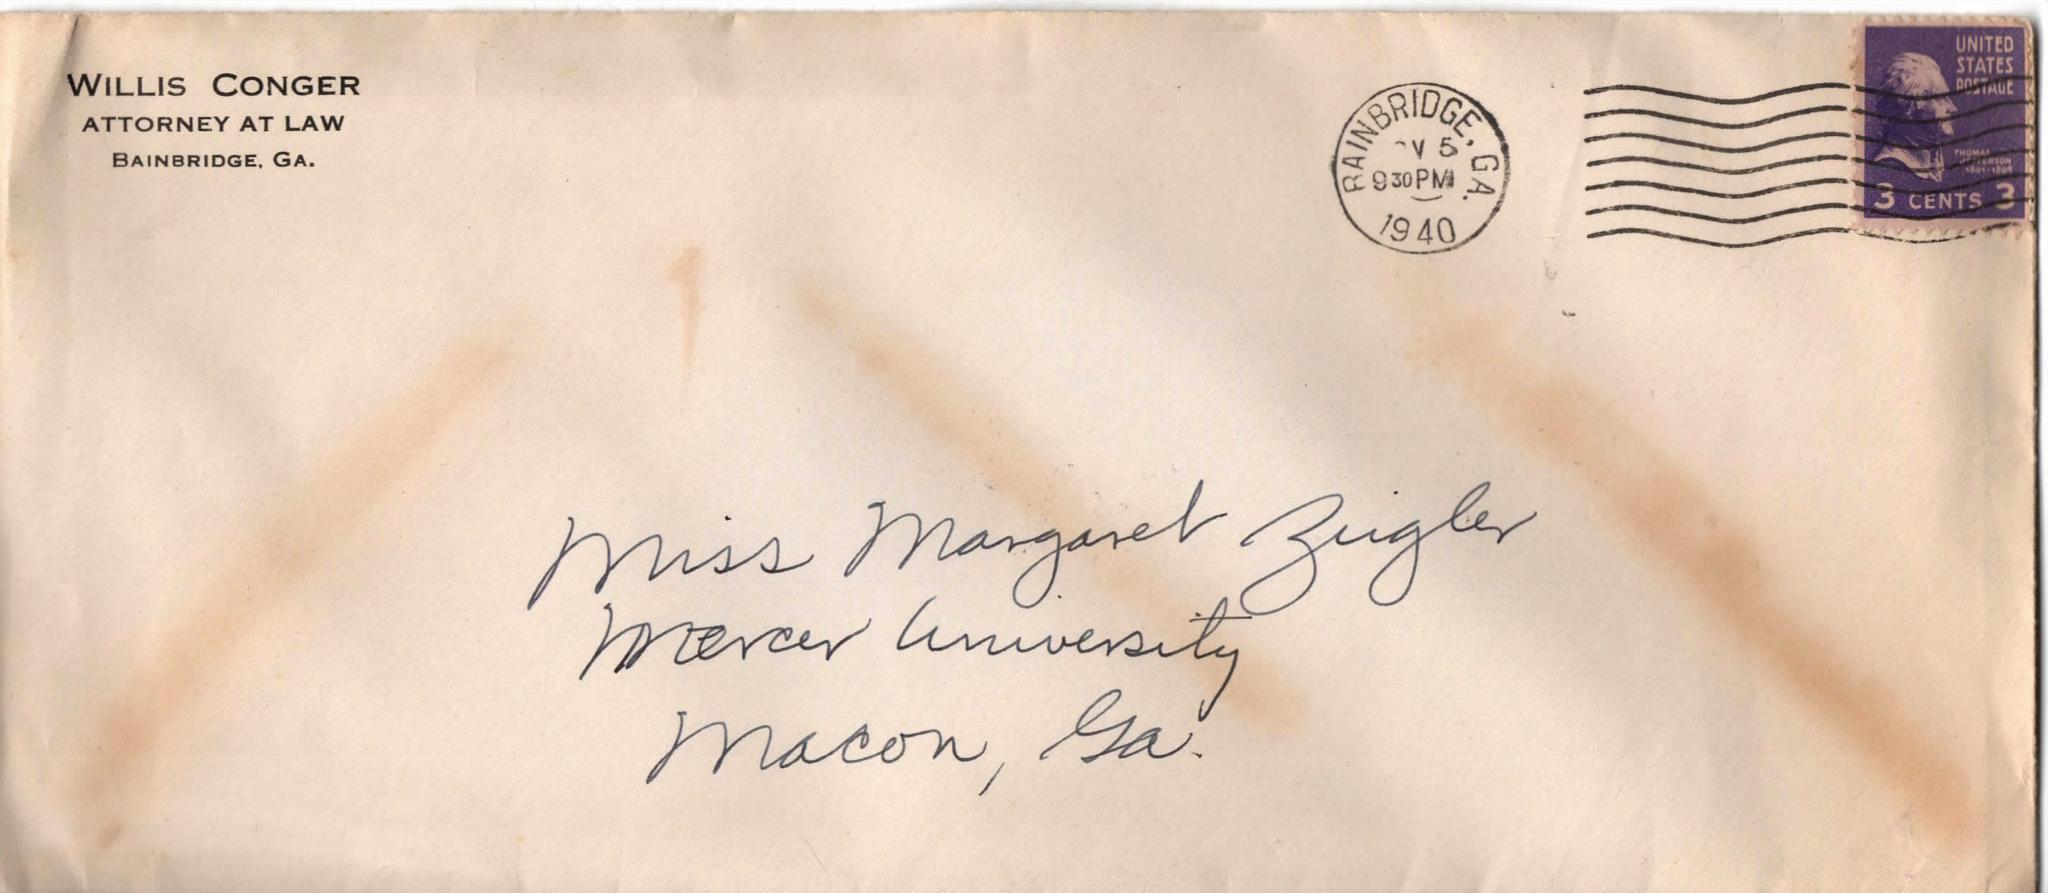 WILLIS CONGER
ATTORNEY AT LAW
BAINBRIDGE, GA.
BAINBRIDGE, GA.
V 5
9 30 PM
1940
UNITED
STATES
POSTAGE
THOMAS
JEFFERSON
1801-1809
3 CENTS 3
Miss Margaret Zeigler
Mercer University
Macon, Ga.